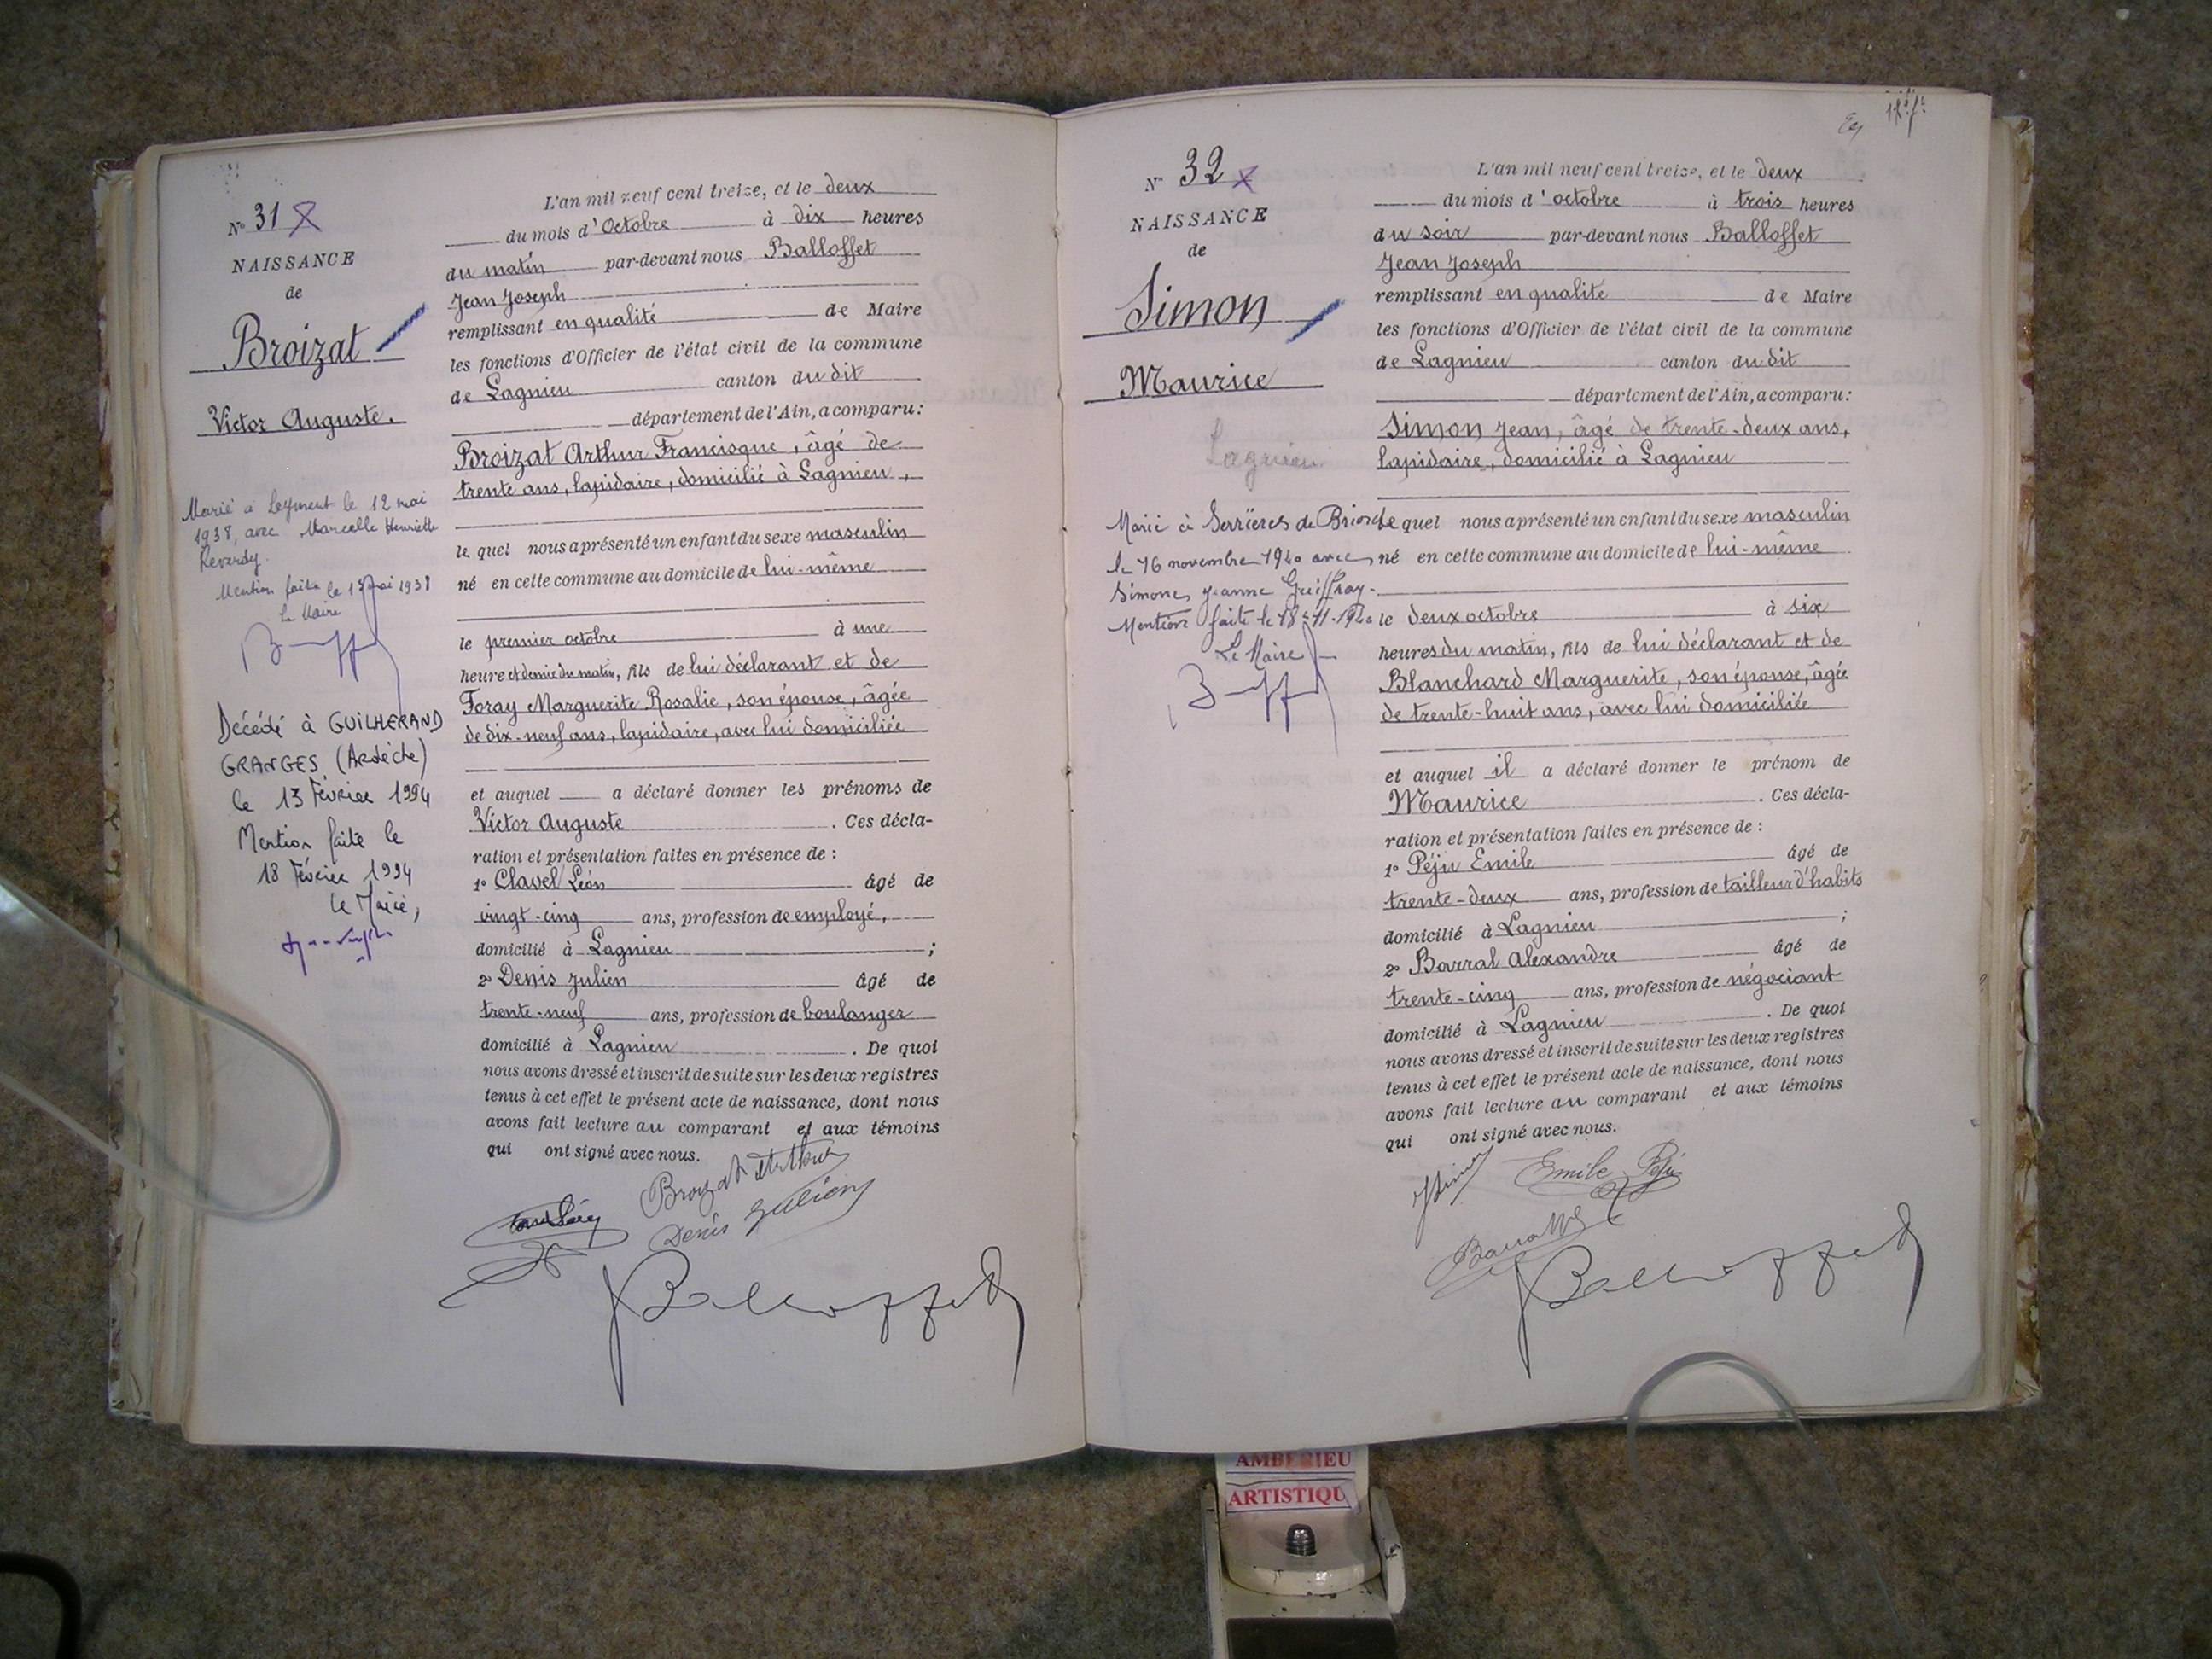 N° 31
NAISSANCE
de
Broizat
Victor Auguste.
Marié à Leyment le 12 mai
1938, avec Marcelle Henriette
Reverdy.
Mention faite le 13 mai 1938
Le Maire
Décédé à GUILHERAND
GRANGES (Ardèche)
le 13 Février 1994
Mention faite le
18 Février 1994
Le Maire,
L'an mil neuf cent treize, et le deux
du mois d'Octobre à dix heures
du matin par-devant nous Balloffet
Jean Joseph
remplissant en qualité de Maire
les fonctions d'Officier de l'état civil de la commune
de Lagnieu canton du dit
département de l'Ain, a comparu :
Broizat Arthur Francisque, âgé de
trente ans, lapidaire, domicilié à Lagnieu,
le quel nous a présenté un enfant du sexe masculin
né en cette commune au domicile de lui-même
le premier octobre à une
heure et demie du matin, fils de lui déclarant et de
Foray Marguerite Rosalie, son épouse, âgée
de dix-neuf ans, lapidaire, avec lui domiciliée
et auquel a déclaré donner les prénoms de
Victor Auguste . Ces décla-
ration et présentation faites en présence de :
1° Clavel Léon âgé de
vingt-cinq ans, profession de employé,
domicilié à Lagnieu ;
2° Denis Julien âgé de
trente-neuf ans, profession de boulanger
domicilié à Lagnieu . De quoi
nous avons dressé et inscrit de suite sur les deux registres
tenus à cet effet le présent acte de naissance, dont nous
avons fait lecture au comparant et aux témoins
qui ont signé avec nous.
Broizat Arthur
Denis Julien
JBalloffet
N° 32
NAISSANCE
de
Simon
Maurice
Lagnieu
Marié à Serrières de Briord
le 16 novembre 1940 avec
Simone Jeanne
Mention faite le 18-11-1940
Le Maire
L'an mil neuf cent treize, et le deux
du mois d'octobre à trois heures
du soir par-devant nous Balloffet
Jean Joseph
remplissant en qualité de Maire
les fonctions d'Officier de l'état civil de la commune
de Lagnieu canton du dit
département de l'Ain, a comparu :
Simon Jean, âgé de trente-deux ans,
lapidaire, domicilié à Lagnieu
le quel nous a présenté un enfant du sexe masculin
né en cette commune au domicile de lui-même
le deux octobre à six
heures du matin, fils de lui déclarant et de
Blanchard Marguerite, son épouse, âgée
de trente-huit ans, avec lui domiciliée
et auquel il a déclaré donner le prénom de
Maurice . Ces décla-
ration et présentation faites en présence de :
1° Péju Emile âgé de
trente-deux ans, profession de tailleur d'habits
domicilié à Lagnieu ;
2° Barral Alexandre âgé de
trente-cinq ans, profession de négociant
domicilié à Lagnieu . De quoi
nous avons dressé et inscrit de suite sur les deux registres
tenus à cet effet le présent acte de naissance, dont nous
avons fait lecture au comparant et aux témoins
qui ont signé avec nous.
JSimon Emile Péju
JBalloffet
AMBERIEU
ARTISTIQU